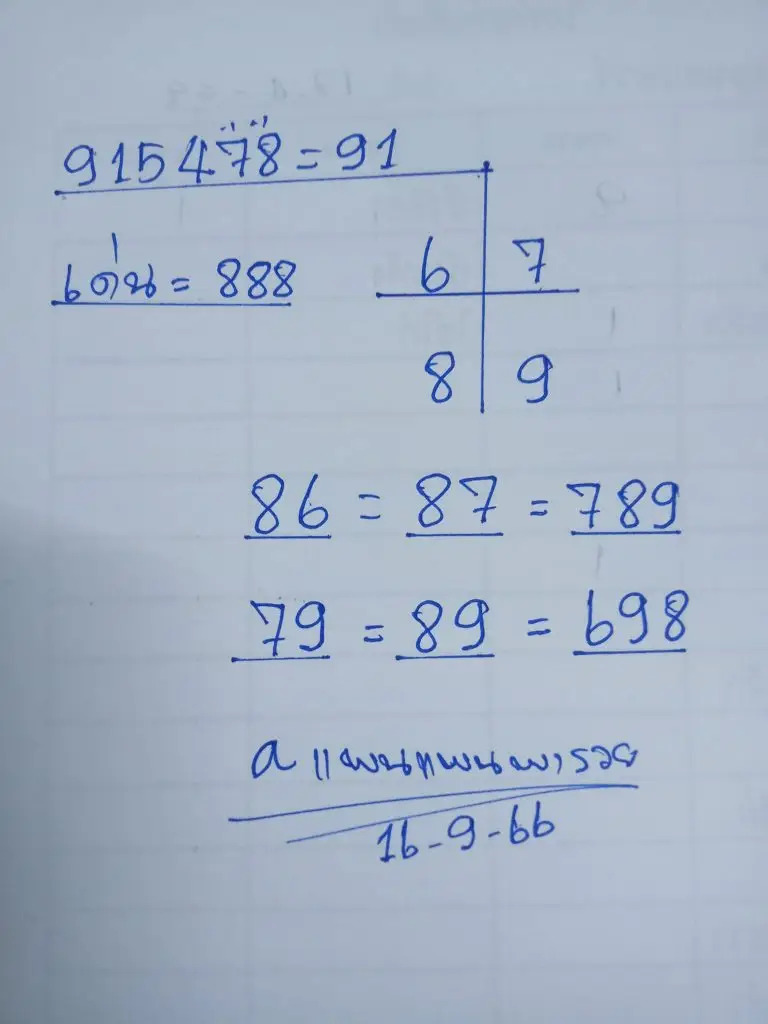 915478=91
เด่น = 888
6 7
8 9
86 = 87 = 789
79 = 89 = 698
16-9-66